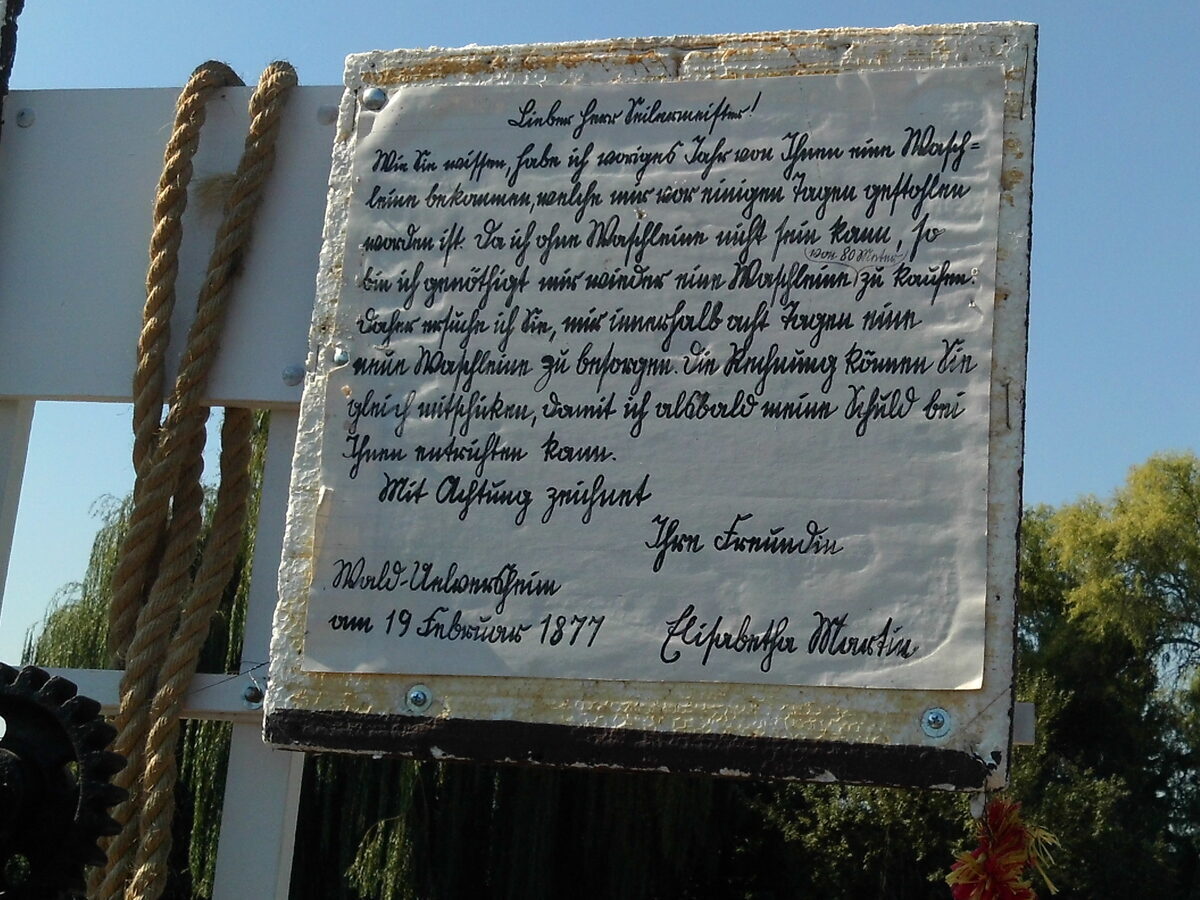 Lieber Herr Seilermeister!
Wie Sie wissen, habe ich voriges Jahr von Ihnen eine Wasch=
leine bekommen, welche mir vor einigen Tagen gestohlen
worden ist. Da ich ohne Waschleine nicht sein kann, so
von 80 Meter
bin ich genöthigt mir wieder eine Waschleine zu kaufen.
Daher ersuche ich Sie, mir innerhalb acht Tagen eine
neue Waschleine zu besorgen. Die Rechnung können Sie
gleich mitschicken, damit ich alsbald meine Schuld bei
Ihnen entrichten kann.
Mit Achtung zeichnet
Ihre Freundin
Wald-Uelversheim
am 19 Februar 1877
Elisabetha Martin